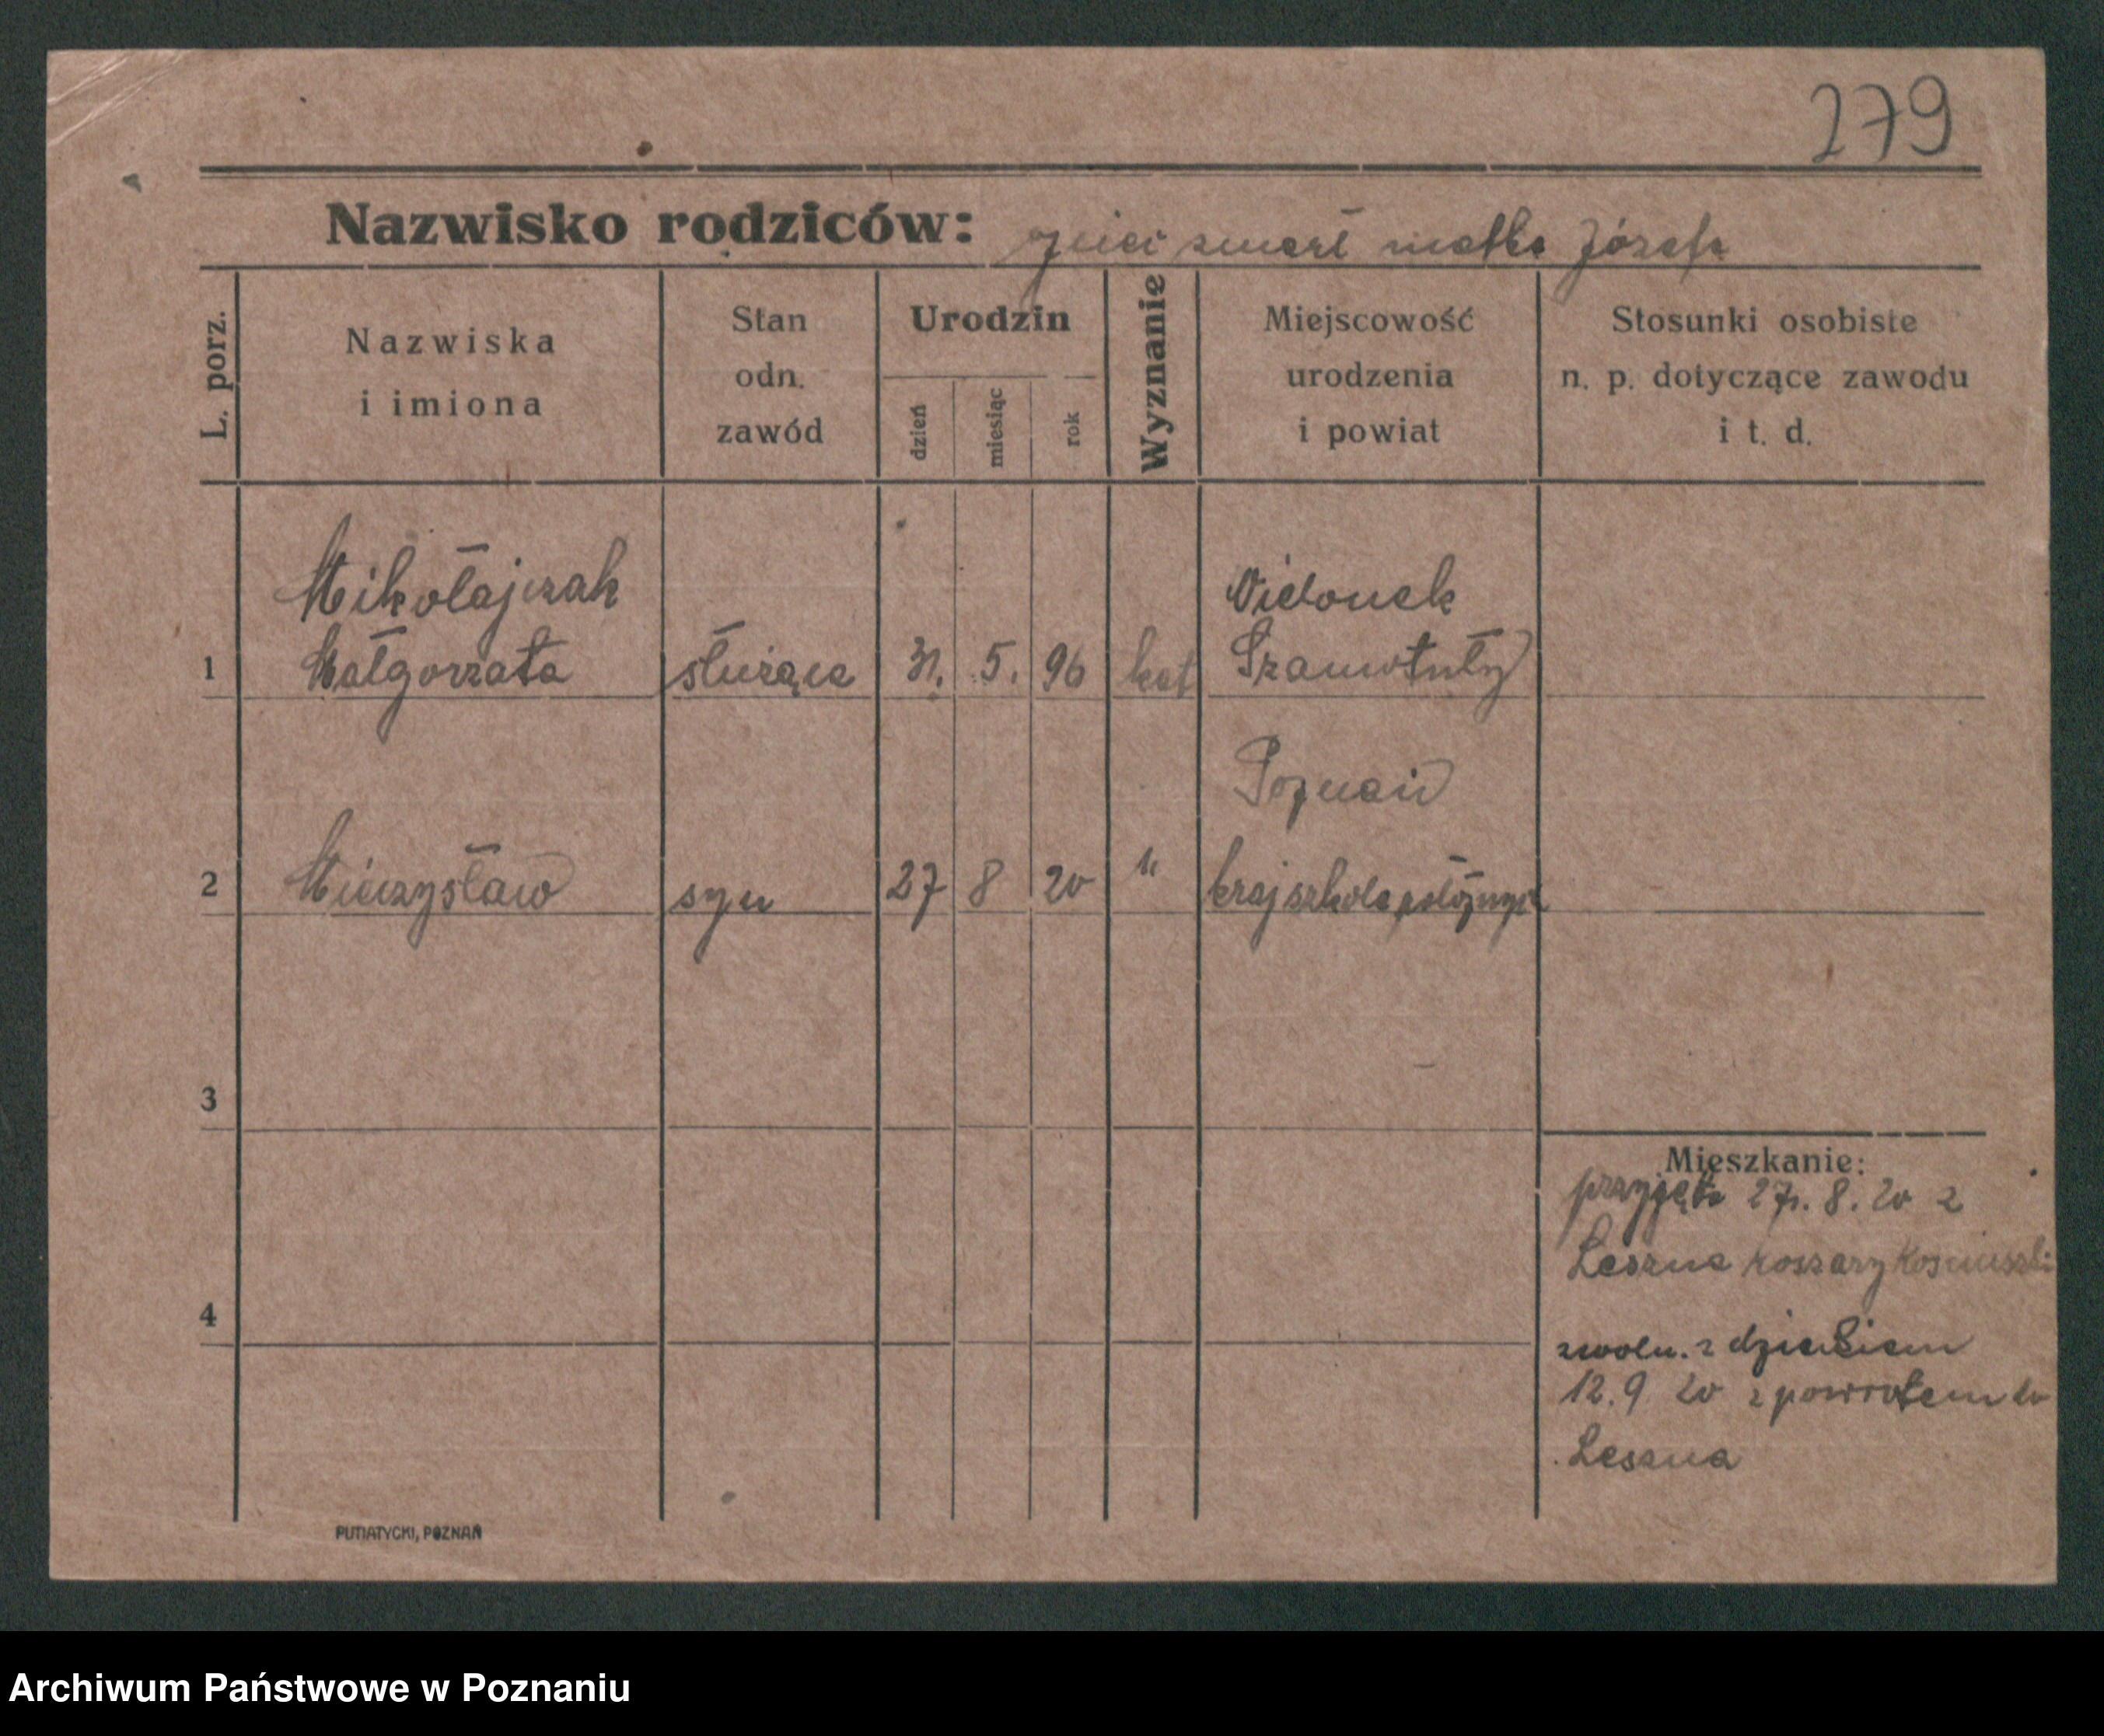 279
Nazwisko rodziców: ojciec zmarł matka Józefa
L. porz.
Nazwiska
i imiona
Stan
odn.
zawód
Urodzin
dzień
miesiąc
rok
Wyznanie
Miejscowość
urodzenia
i powiat
Stosunki osobiste
n. p. dotyczące zawodu
i t. d.
Mikołajczak
1 Małgorzata służąca 31. 5. 96 kat Szamotuły
Poznań
2 Mieczysław syn 27 8 20 " kraj szkoła położnych
3
Mieszkanie:
przyjęta 27. 8. 20 z
Leszna koszary Kościuszki
4
zwoln. z dzieckiem
12. 9 20 z powrotem do
Leszna
PUTIATYCKI, POZNAŃ
Archiwum Państwowe w Poznaniu